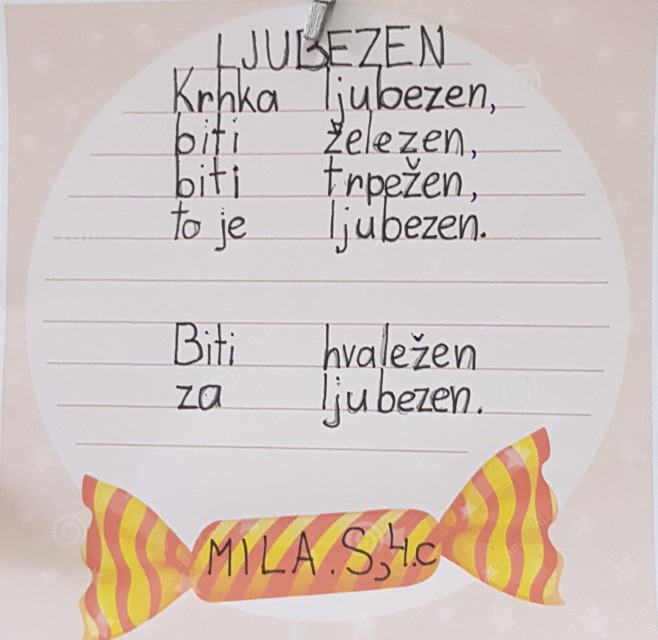 LJUBEZEN
Krhka ljubezen,
biti železen,
biti trpežen,
to je ljubezen.
Biti hvaležen
za ljubezen.
MILA.S,4.c